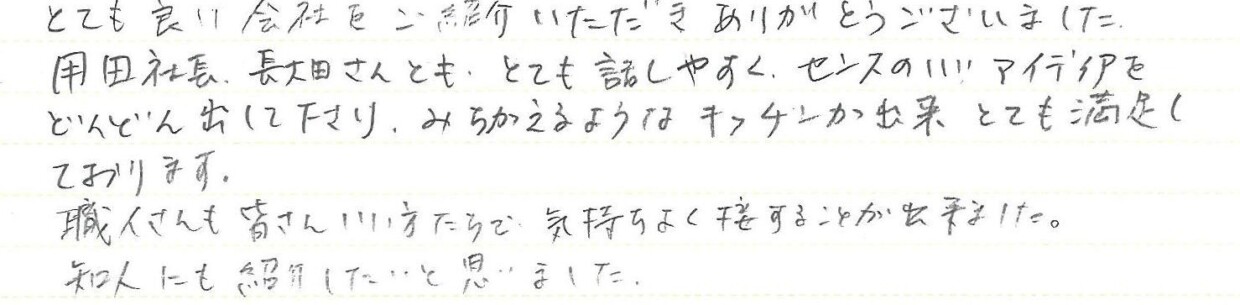 とても良い会社をご紹介いただきありがとうございました.
用田社長、長太田さんとも、とても話しやすく、センスのいいアイディアを
どんどん出して下さり、みちがえるようなキッチンが出来とても満足し
ております。
職人さんも皆さんいい方たちで、気持ちよく接することが出来ました。
知人にも紹介したいと思いました.